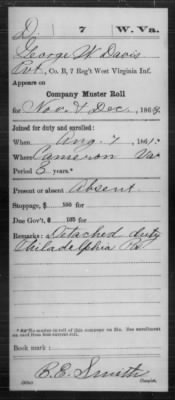 D. 7 W. Va.
George W Davis
Pvt., Co. B, 7 Reg't West Virginia Inf.
Appears on
Company Muster Roll
for Nov. & Dec., 186
Joined for duty and enrolled:
When Aug. 7, 1861.
Where Cameron Va
Period 3 years.*
Present or absent Absent
Stoppage, $ 100 for
Due Gov't, $ 100 for
Remarks: Detached duty
Philadelphia Pa
Book mark:
B.E. Smith
Copyist.